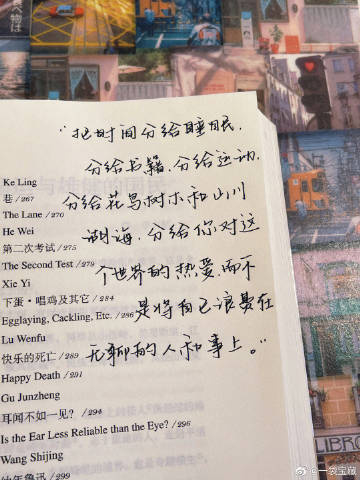 “把时间分给睡眠，
分给书籍，分给运动，
分给花鸟树木和山川
湖海，分给你对这
个世界的热爱，而不
是将自己浪费在
无聊的人和事上。”
Ke Ling
巷 /267
The Lane /270
He Wei
第二次考试 /275
The Second Test /279
Xie Yi
下蛋·唱鸡及其它 /284
Egglaying, Cackling, Etc. /286
Lu Wenfu
快乐的死亡 /289
Happy Death /291
Gu Junzheng
耳闻不如一见？ /294
Is the Ear Less Reliable than the Eye? /296
Wang Shijing
幼年鲁迅 /299
LIBRO
@一袋宝藏